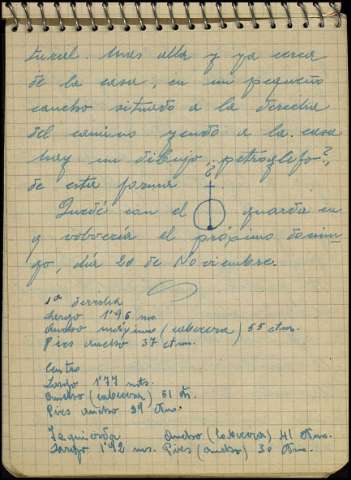 tural. Mas alla y ya cerca
de la casa, en un pequeño
cancho situado a la derecha
del camino yendo a la casa
hay un dibujo ¿petroglifo?,
de esta forma
Quedé con el guarda en
q volvería el próximo domin-
go, día 20 de Noviembre.
1ª derecha
Largo 1'96 m.
Ancho máximo (cabecera) 55 ctm.
Pies ancho 37 ctm.
Centro
Largo 1'77 mts.
Ancho (cabecera) 51 ctm.
Pies ancho 39 ctms.
Izquierda Ancho (cabecera) 41 ctms.
Largo 1'92 ms. Pies (ancho) 30 ctms.